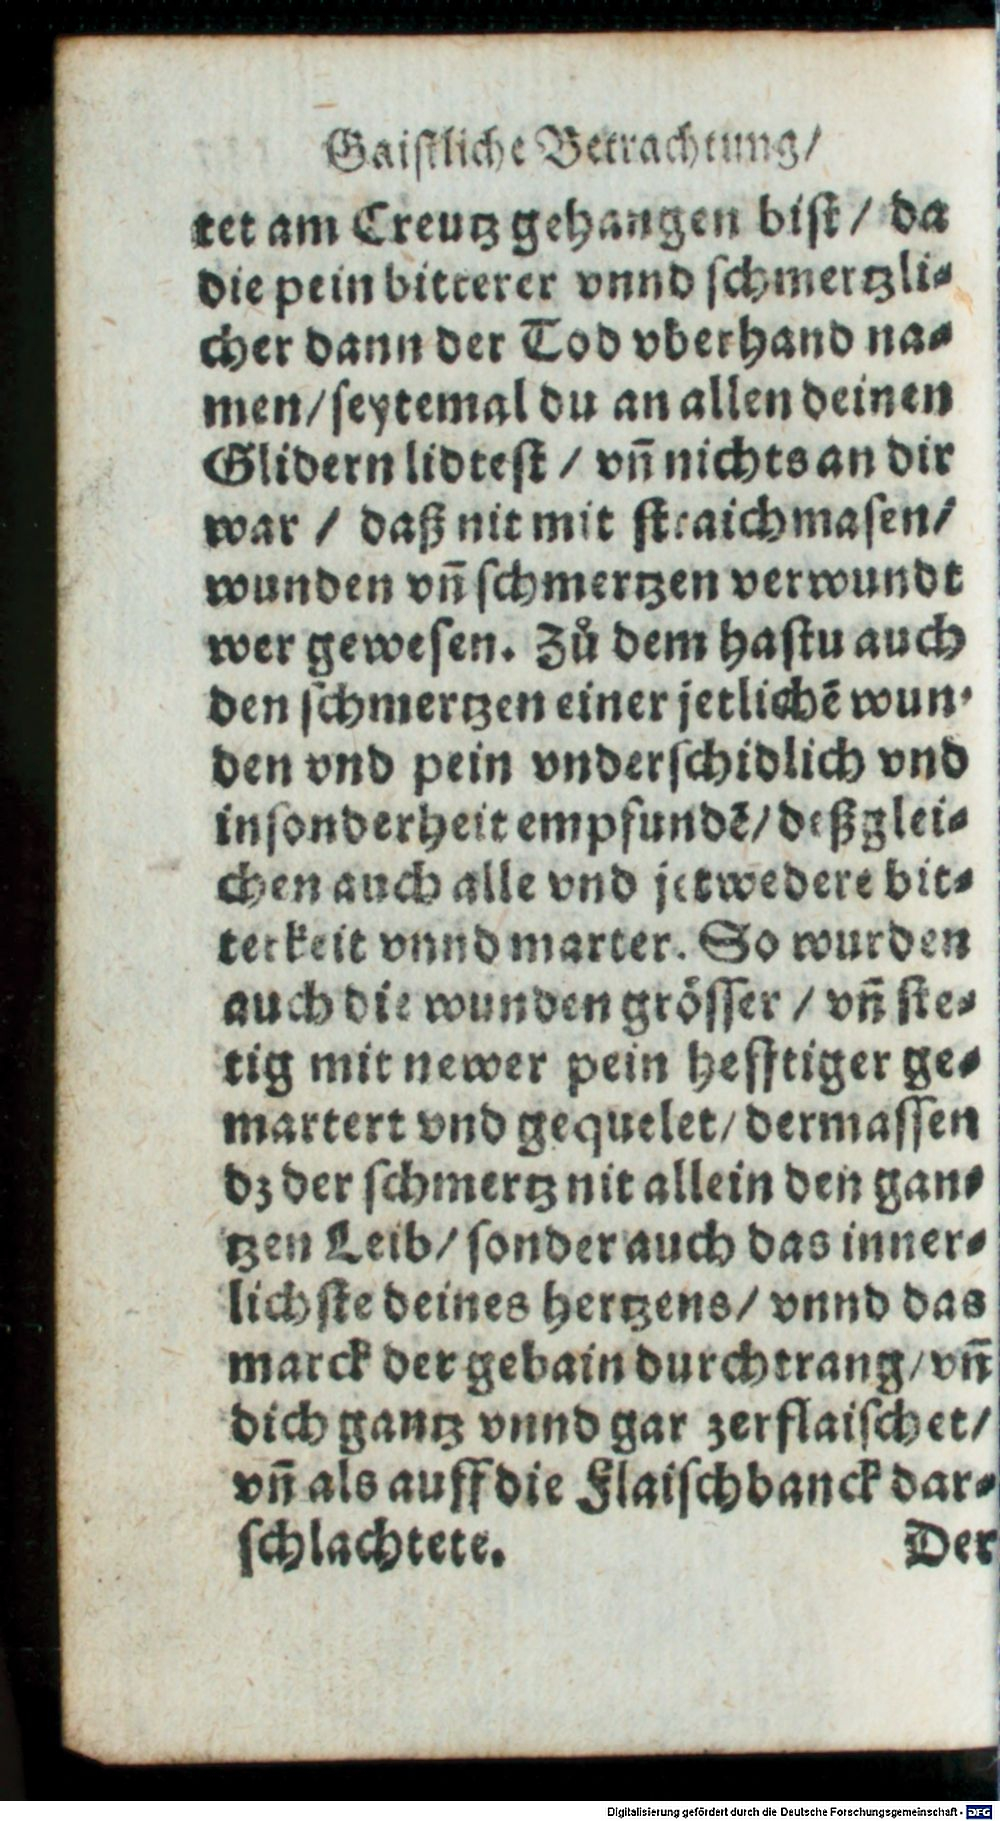 Gaistliche Betrachtung/
tet am Creutz gehangen bist / da
die pein bitterer vnnd schmertzli⸗
cher dann der Tod vberhand na⸗
men/seytemal du an allen deinen
Glidern lidtest / vñ nichts an dir
war / daß nit mit straichmasen/
wunden vñ schmertzen verwundt
wer gewesen. Zů dem hastu auch
den schmertzen einer jetlichẽ wun⸗
den vnd pein vnderschidlich vnd
insonderheit empfundẽ/ deßglei⸗
chen auch alle vnd jetwedere bit⸗
terkeit vnnd marter. So wurden
auch die wunden grösser / vñ ste⸗
tig mit newer pein hefftiger ge⸗
martert vnd gequelet/ dermassen
dz der schmertz nit allein den gan⸗
tzen Leib/ sonder auch das inner⸗
lichste deines hertzens/ vnnd das
marck der gebain durchtrang/ vñ
dich gantz vnnd gar zerflaischet/
vñ als auff die Flaischbanck dar⸗
schlachtete. Der
Digitalisierung gefördert durch die Deutsche Forschungsgemeinschaft - DFG